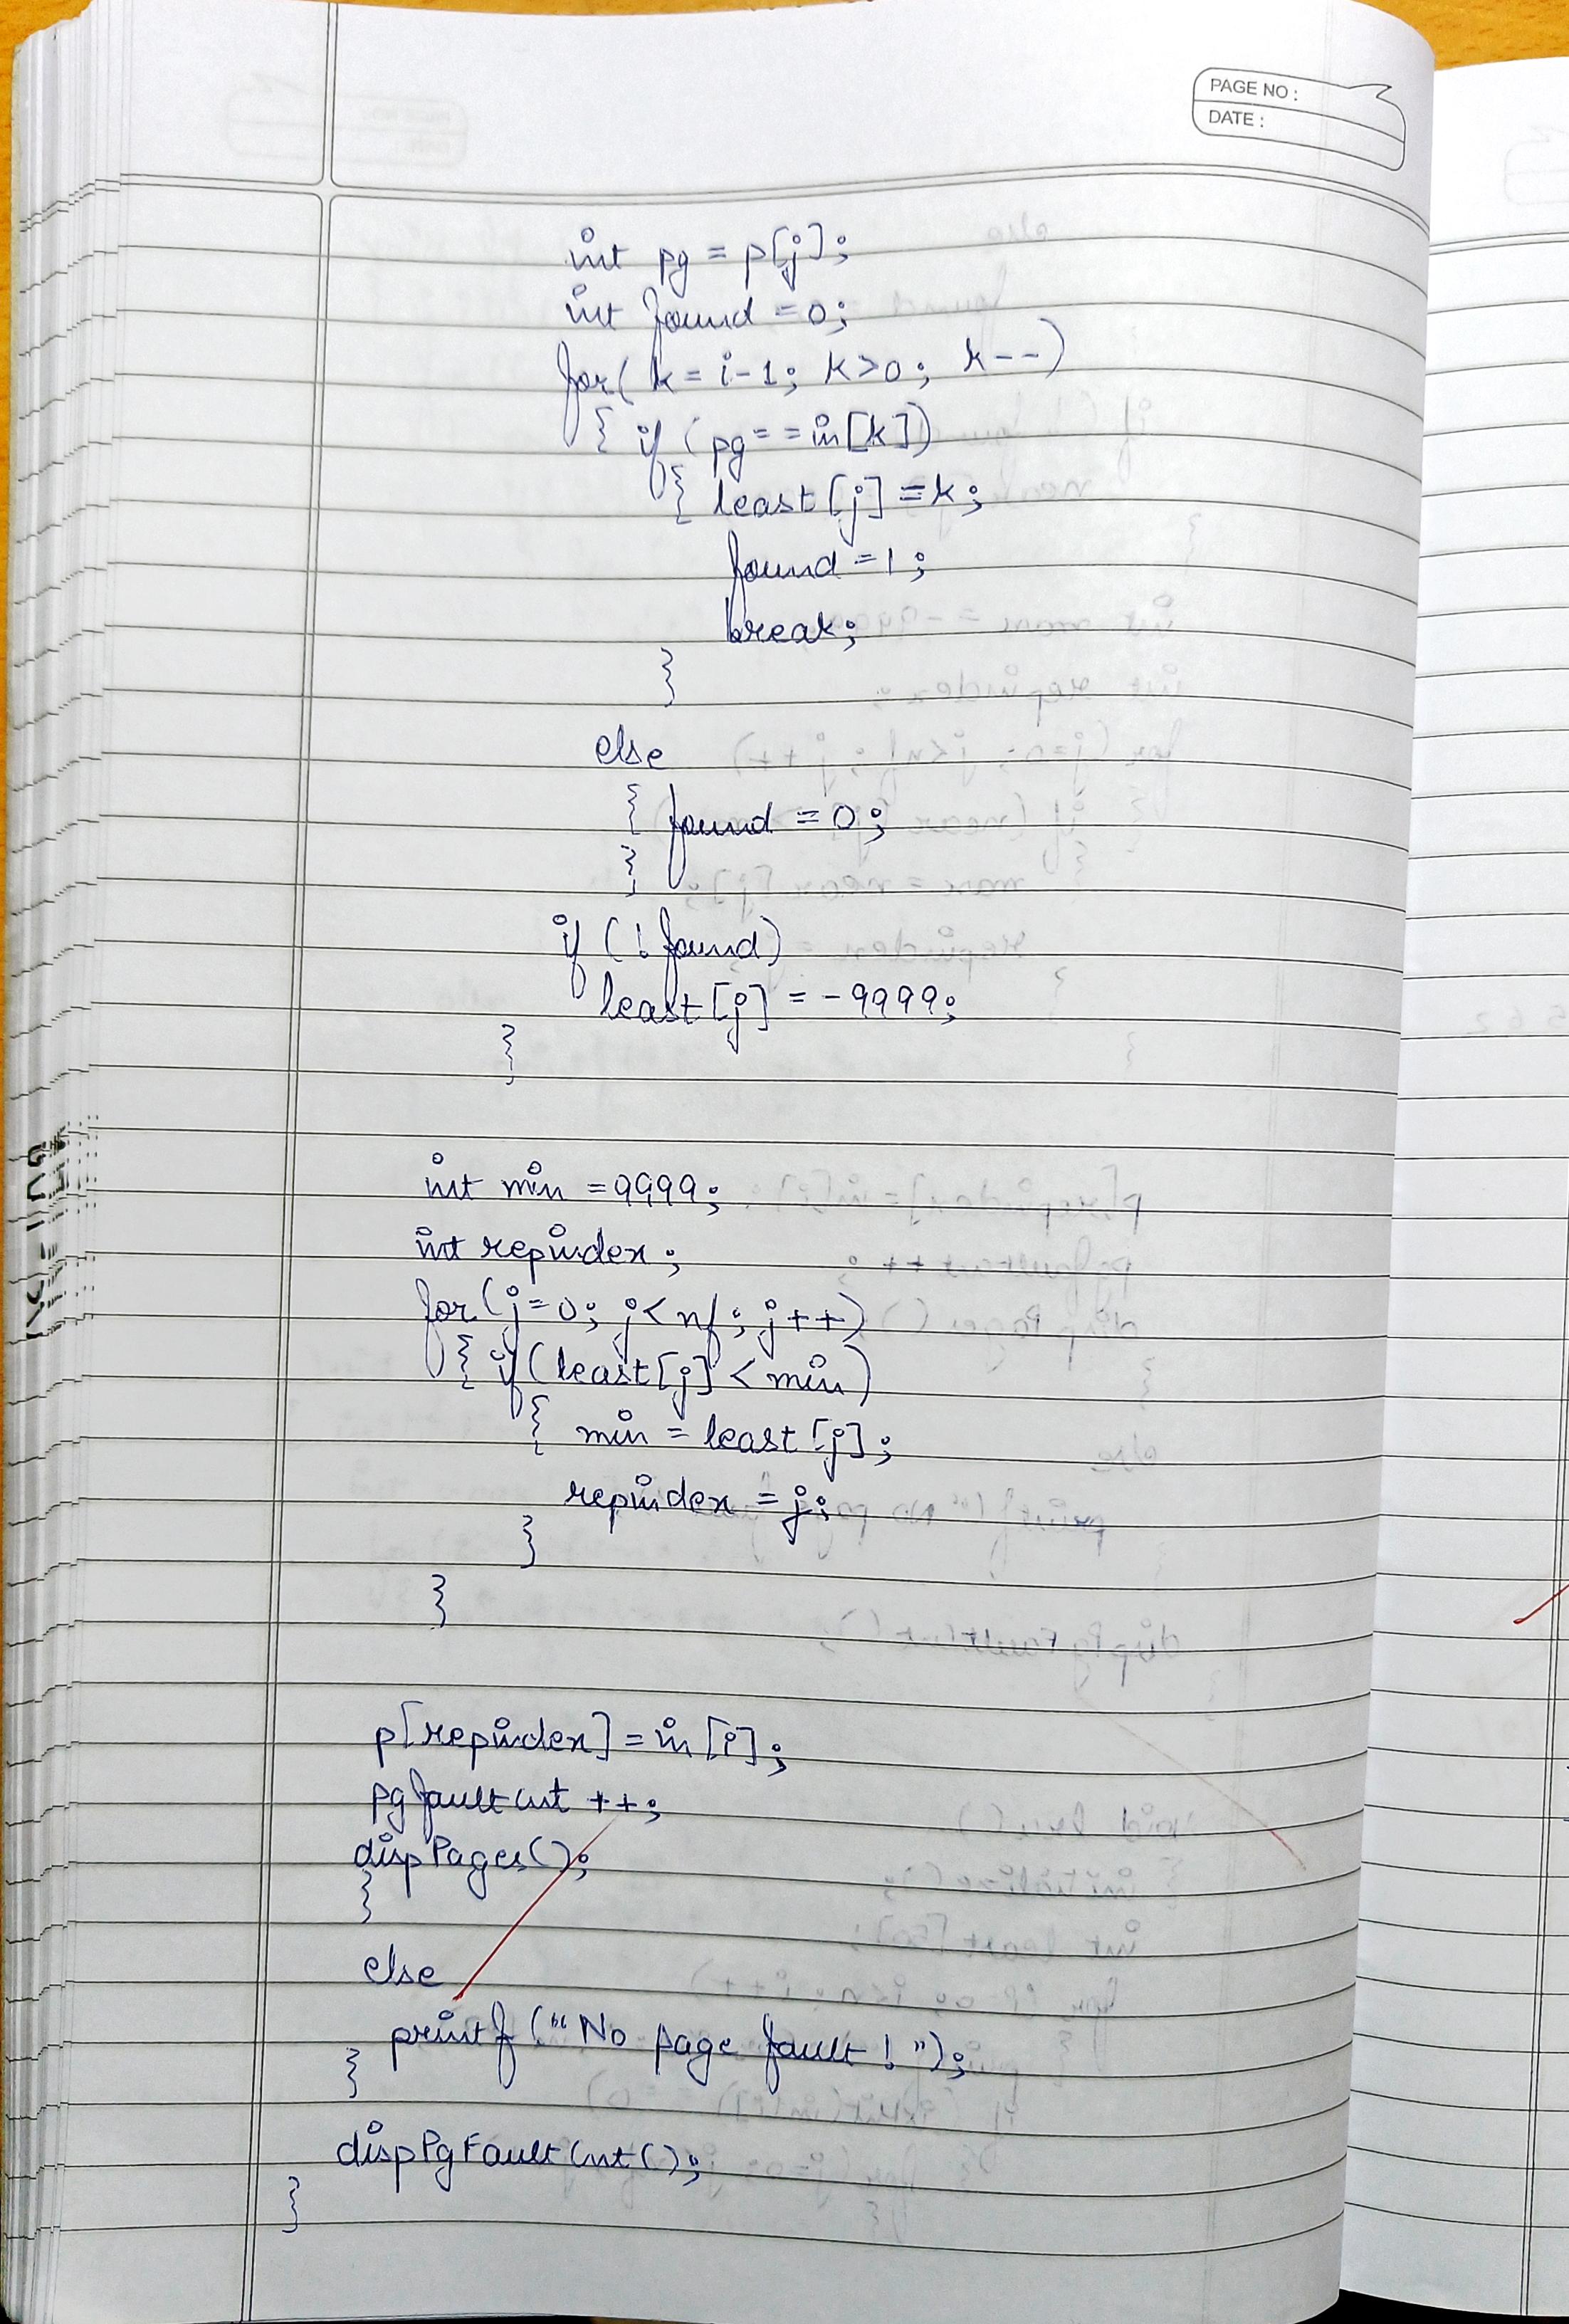 PAGE NO :
DATE :
int pg = p[j];
int found = 0;
for( k = i-1; k>0; k--)
{ if (pg == in[k])
{ least[j] = k;
found = 1;
break;
}
else
{ found = 0;
}
if (!found)
least[j] = -9999;
}
int min = 9999;
int repindex;
for(j=0; j<nf; j++)
{ if(least[j] < min)
{ min = least[j];
repindex = j;
}
}
p[repindex] = in[i];
pgfaultcnt ++;
dispPages();
}
else
printf ("No page fault!");
}
dispPgFaultCnt();
}